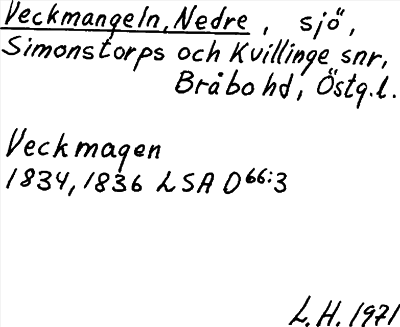 Veckmangeln, Nedre, sjö,
Simonstorps och Kvillinge snr,
Bråbo hd, Östg.l.
Veckmagen
1834, 1836 LSA D66:3
L.H. 1971